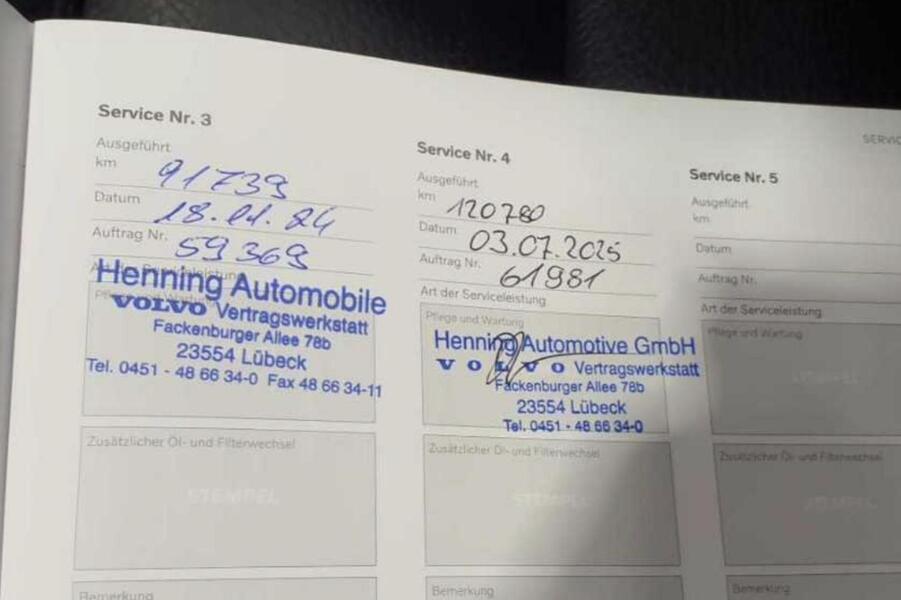 Service Nr. 3
Ausgeführt
km 91739
Datum 18.01.24
Auftrag Nr. 59369
Art der Serviceleistung
Pflege und Wartung
Henning Automobile
VOLVO Vertragswerkstatt
Fackenburger Allee 78b
23554 Lübeck
Tel. 0451 - 48 66 34-0 Fax 48 66 34-11
Zusätzlicher Öl- und Filterwechsel
STEMPEL
Bemerkung
Service Nr. 4
Ausgeführt
km 120780
Datum 03.07.2025
Auftrag Nr. 61981
Art der Serviceleistung
Pflege und Wartung
Henning Automotive GmbH
VOLVO Vertragswerkstatt
Fackenburger Allee 78b
23554 Lübeck
Tel. 0451 - 48 66 34-0
Zusätzlicher Öl- und Filterwechsel
STEMPEL
Bemerkung
SERVIC
Service Nr. 5
Ausgeführt
km
Datum
Auftrag Nr.
Art der Serviceleistung
Pflege und Wartung
STEMPEL
Zusätzlicher Öl- und Filterwechsel
STEMPEL
Bemerkung